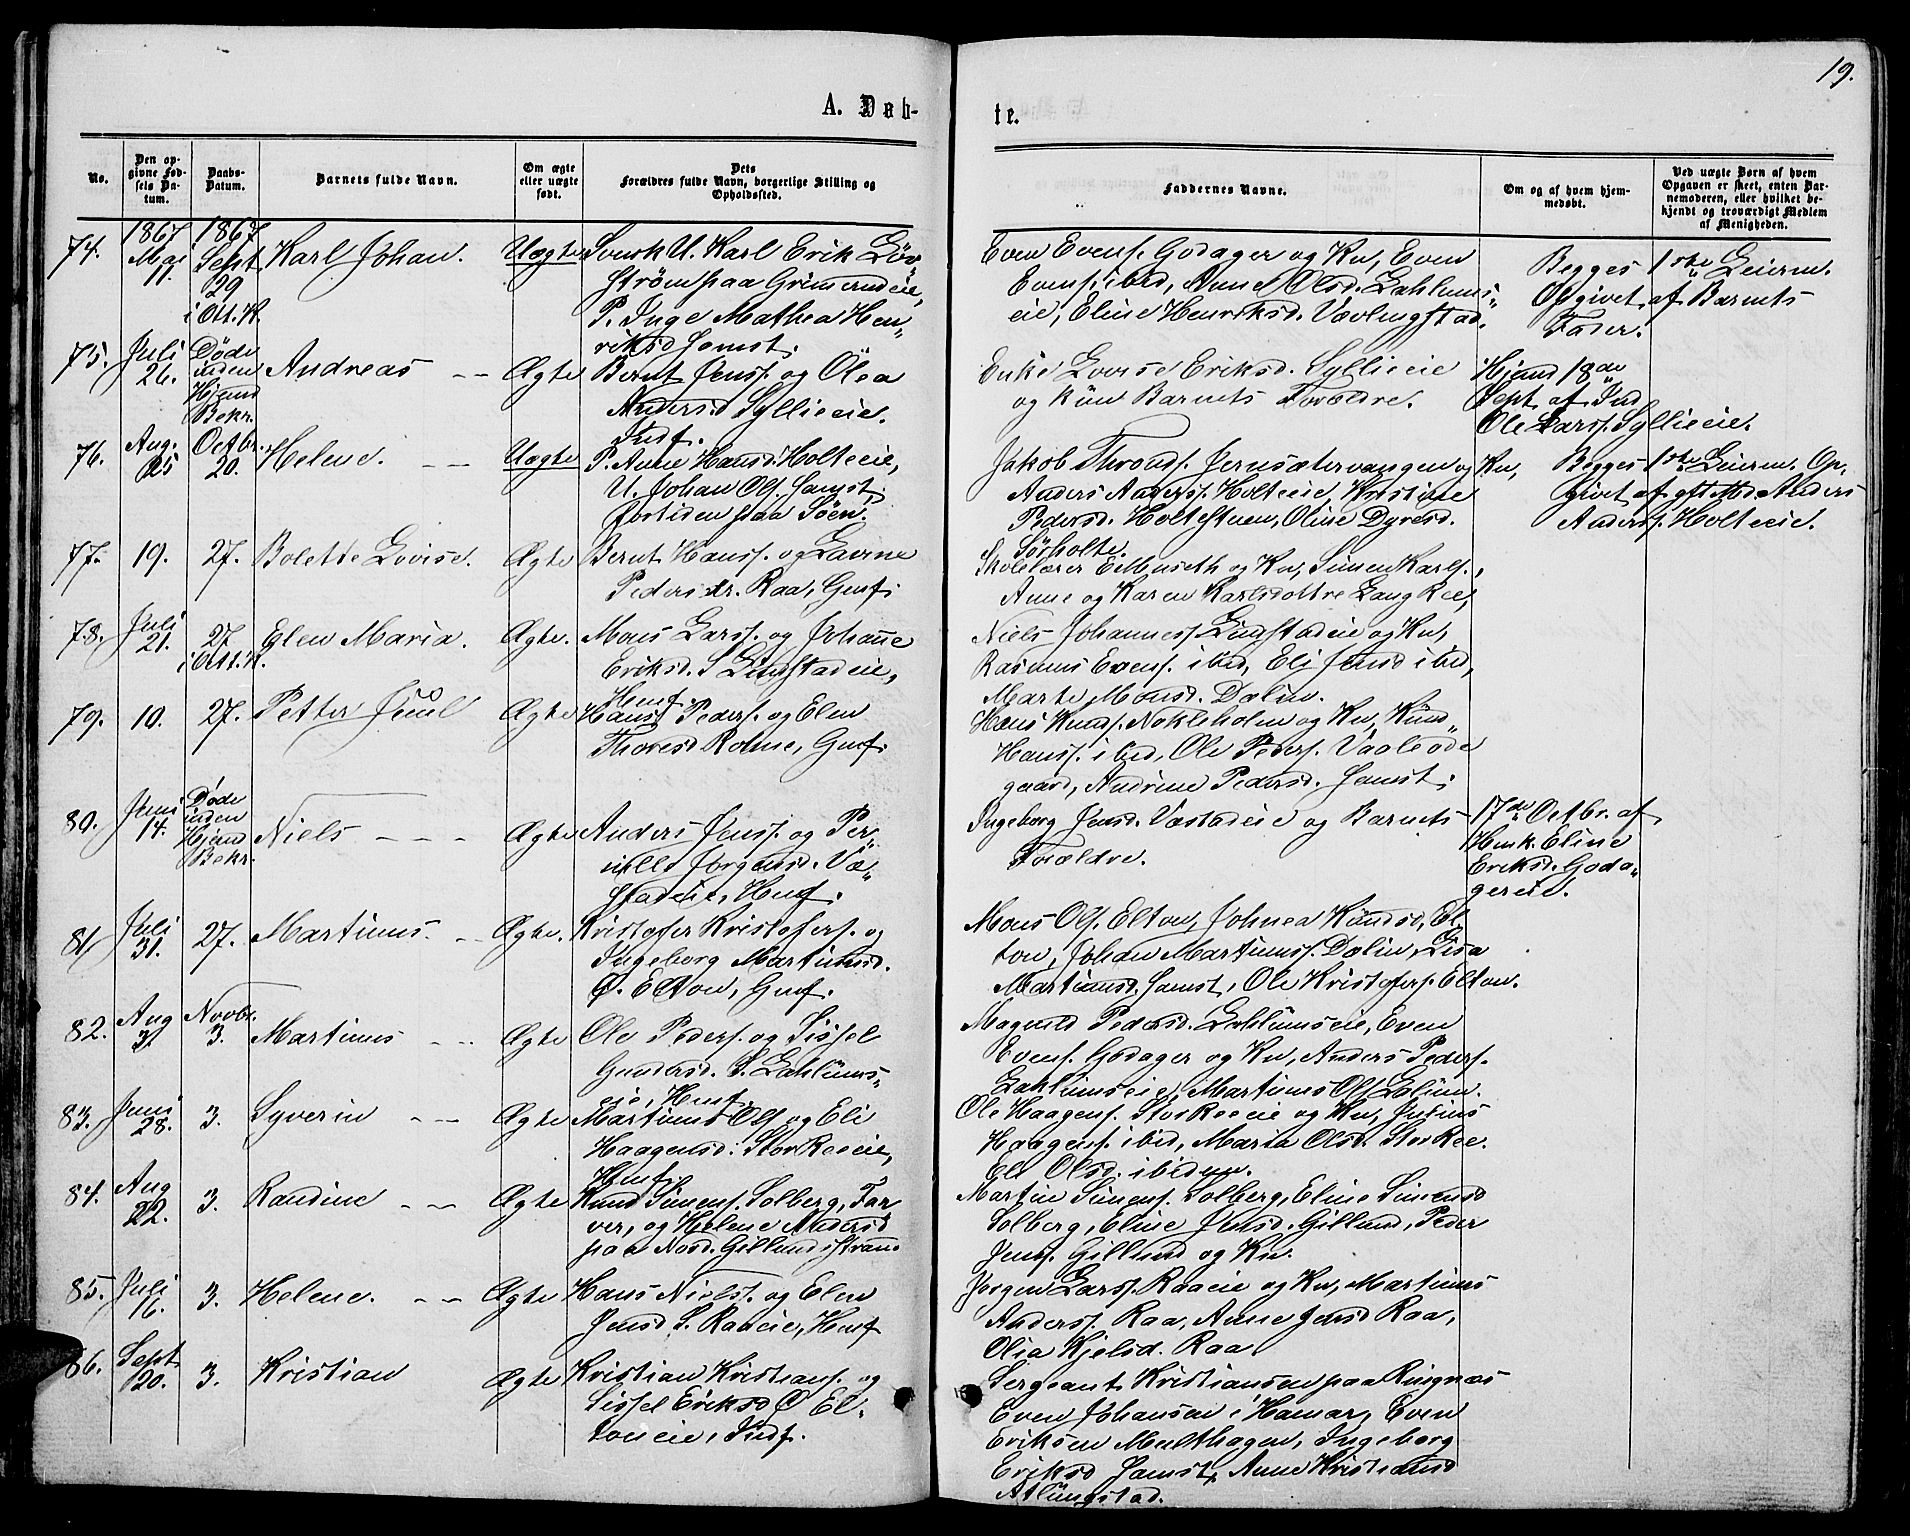 19.
A. Døb-
te.
No.
Den op-
givne Fød-
sels Da-
tum.
Daabs-
Datum.
Barnets fulde Navn.
Om ægte
eller uægte
født.
Dets
Forældres fulde Navn, borgerlige Stilling og
Opholdssted.
Faddernes Navne.
Om og af hvem hjem-
medøbt.
Ved uægte Børn af hvem
Opgaven er skeet, enten Bar-
nemoderen, eller hvilket be-
kjendt og troværdigt Medlem
af Menigheden.
74.
1867
Mai
11.
1867
Sept
29
i Ott. K.
Karl Johan.
Uægte
Svensk U. Karl Erik Löv
ström paa Grimerudeie,
P. Inge Mathea Hen„
riksd Samst.
Even Evens. Godager og Kn, Even
Evens. ibid, Anne Olsd. Eahlums„
eie, Eline Henriksd. Vævlingstad.
Begges 1ste Leierm.
Opgivet af Barnets
Fader.
75.
Juli
26.
Døde
inden
Hjemd
Bekr.
Andreas
Ægte
Bernt Jens. og Olea
Andersd Syllieeie.
Indf.
Enke Lovise Eriksd. Syllieeie
og kun Barnets Forældre.
Hjemd 18de
Sept af Ind
Ole Larss. Syllieeie.
76.
Aug.
25
Octbr.
20.
Helene.
Uægte
P. Anne Hansd. Holteeie,
U. Johan Ols. Samst,
fortiden paa Søen.
Jakob Thronds. Jernsætervangen og Kn,
Anders Anderss. Holteeie, Kristine
Pedersd. Holtestuen, Oline Dyresd.
Sörholte.
Begges 1ste Leierm. Op„
givet af gft Md Anders
Anderss. Holteeie.
77.
19.
27.
Bolette Lovise.
Ægte
Bernt Hanss. og Lavrine
Pedersdr. Raa, Gmf.
Skolelærer E Museth og Kn, Simen Karls.,
Anne og Karen Karlsdottre Lang Ree,
78.
Juli
21.
27
i Ott. K.
Elen Maria.
Ægte.
Mons Larss. og Johanne
Eriksd. S Lindstadeie,
Hmf.
Niels Johanness. Lindstadeie og Kn,
Rasmus Evens. ibid, Eli Jensd ibid,
Marte Monsd. Dælin.
79.
10.
27.
Petter Juul
Ægte
Hans Peders. og Elen
Thoresd Rohne, Gmf.
Hans Knuds. Nøkleholm og Kn, Knud
Hanss. ibid, Ole Peders. Vaaleöde
gaard, Andrine Pedersd. Samst.
80.
Juni
14.
Døde
inden
Hjemd
Bekr.
Niels
Ægte
Anders Jenss. og Per„
nille Jørgensd. Væ„
stadeie, Hmf.
Ingeborg Jensd. Væstadeie og Barnets
Forældre.
17de Octbr. af
Hmk. Eline
Eriksd. Goda„
gereie.
81
Juli
31.
27.
Martinus.
Ægte.
Kristofer Kristofers. og
Ingeborg Martinusd.
Ø. Elton, Gmf.
Mons Ols. Elton, Johnea Knudsd, El„
ton, Johan Martinuss. Dælin, Lisa
Martinusd. Samst, Ole Kristofers. Elton.
82.
Aug
3.
Novbr.
3.
Martinus
Ægte
Ole Peders. og Sissel
Gundersd. S. Eahlums„
eie, Hmf.
Magnild Pedersd. Eahlumseie, Even
Evens. Godager og Kn, Anders Peders.
Eahlumseie, Martinus Ols. Eælum.
83.
Juni
28.
3.
Syverin
Ægte
Martinus Ols og Eli
Haagensd. Stor Reeeie,
Hmf.
Ole Haagens. Stor Reeeie og Kn, Julius
Haagens. ibid, Maria Olsd. Stor Ree.
Eli Olsd. ibidem.
84.
Aug
22.
3.
Randine
Ægte
Knud Simens. Solberg, Far„
ver, og Helene Andersd
paa Nord. Gillundsstrand
Martin Simens. Solberg, Eline Simensd
Solberg, Eline Jensd. Gillund, Peder
Jens. Gillund og Kn.
85.
Juli
16.
3.
Helene.
Ægte
Hans Niels. og Elen
Jensd S. Raaeie, Hmf
Jørgen Larss. Raaeie og Kn, Martinus
Anderss. Raa, Anne Jensd Raa,
Olia Kjelsd. Raa.
86.
Sept
20.
3.
Kristian
Ægte
Kristian Kristians. og
Sissel Eriksd Ø El„
toneie, Indf.
Sergeant Kristiansen paa Ringnæs
Even Johansen i Hamar, Even
Eriksen Melthagen, Ingeborg
Eriksd Samst, Anne Kristiansd
Atlungstad.